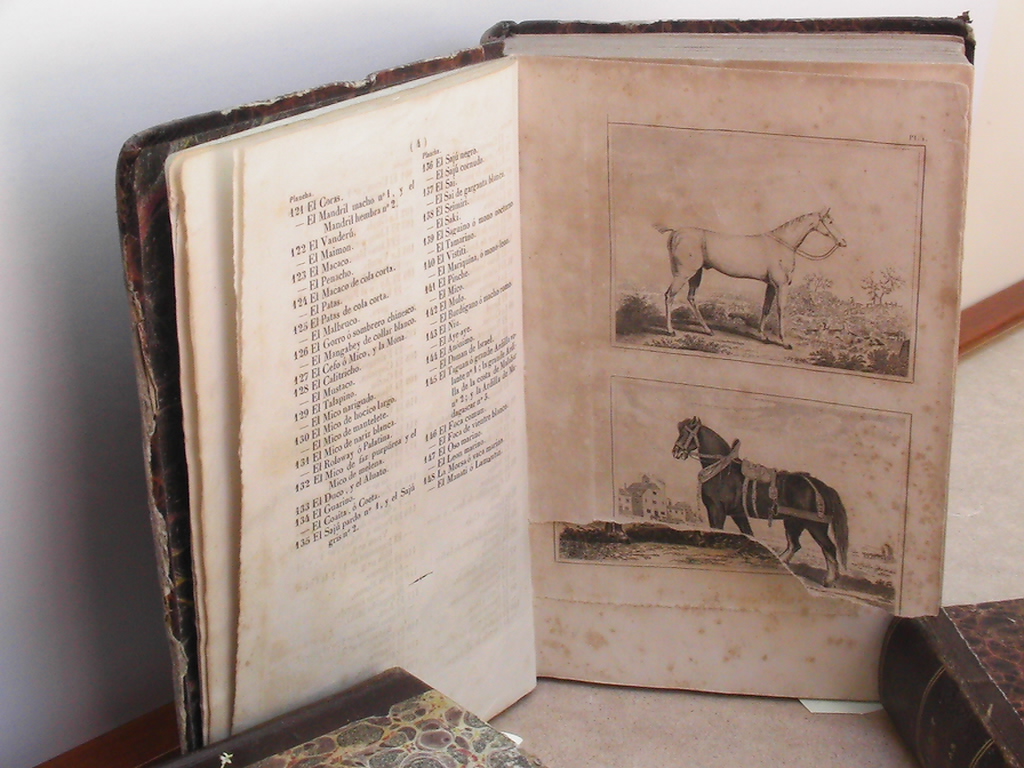 ( 4 )
Plancha.
121 El Coras.
— El Mandril macho nº 1, y el
Mandril hembra nº 2.
122 El Vanderú.
— El Maimon.
123 El Macaco.
— El Penacho.
124 El Macaco de cola corta.
— El Patas.
125 El Patas de cola corta.
— El Malbruco.
126 El Gorro ó sombrero chinesco.
— El Mangabey de collar blanco.
127 El Cefo ó Mico, y la Mona.
— El Calitricho.
128 El Mustaco.
— El Talapino.
129 El Mico narigudo.
— El Mico de hocico largo.
130 El Mico de mantelete.
— El Mico de nariz blanca.
131 El Roloway ó Palatina.
— El Mico de faz purpúrea y el
132 Mico de melena.
133 El Duco, y el Aluato.
134 El Guarino.
— El Goaita, ó Coeta.
135 El Sajú pardo nº 1, y el Sajú
gris nº 2.
Plancha.
136 El Sajú negro.
— El Sajú cornudo.
137 El Sai.
— El Sai de garganta blanca.
138 El Seimiri.
— El Saki.
139 El Saguino ó mono nocturno
— El Tamarino.
140 El Vistiti.
— El Mariquina, ó mono leon.
141 El Pinche.
— El Mico.
142 El Molo.
— El Burdigano ó macho enano
143 El Nia.
— El Aye-aye.
144 El Anónimo.
— El Daman de Israel.
145 El Taguan ó grande Ardilla vo-
lante nº 1; la grande Ardi-
lla de la costa de Malabar
nº 2; y la Ardilla de Ma-
dagascar nº 3.
146 El Foca comun.
— El Foca de vientre blanco.
147 El Oso marino.
— El Leon marino.
148 La Morsa ó vaca marina.
— El Manati ó Lamantin.
Pl. 1.